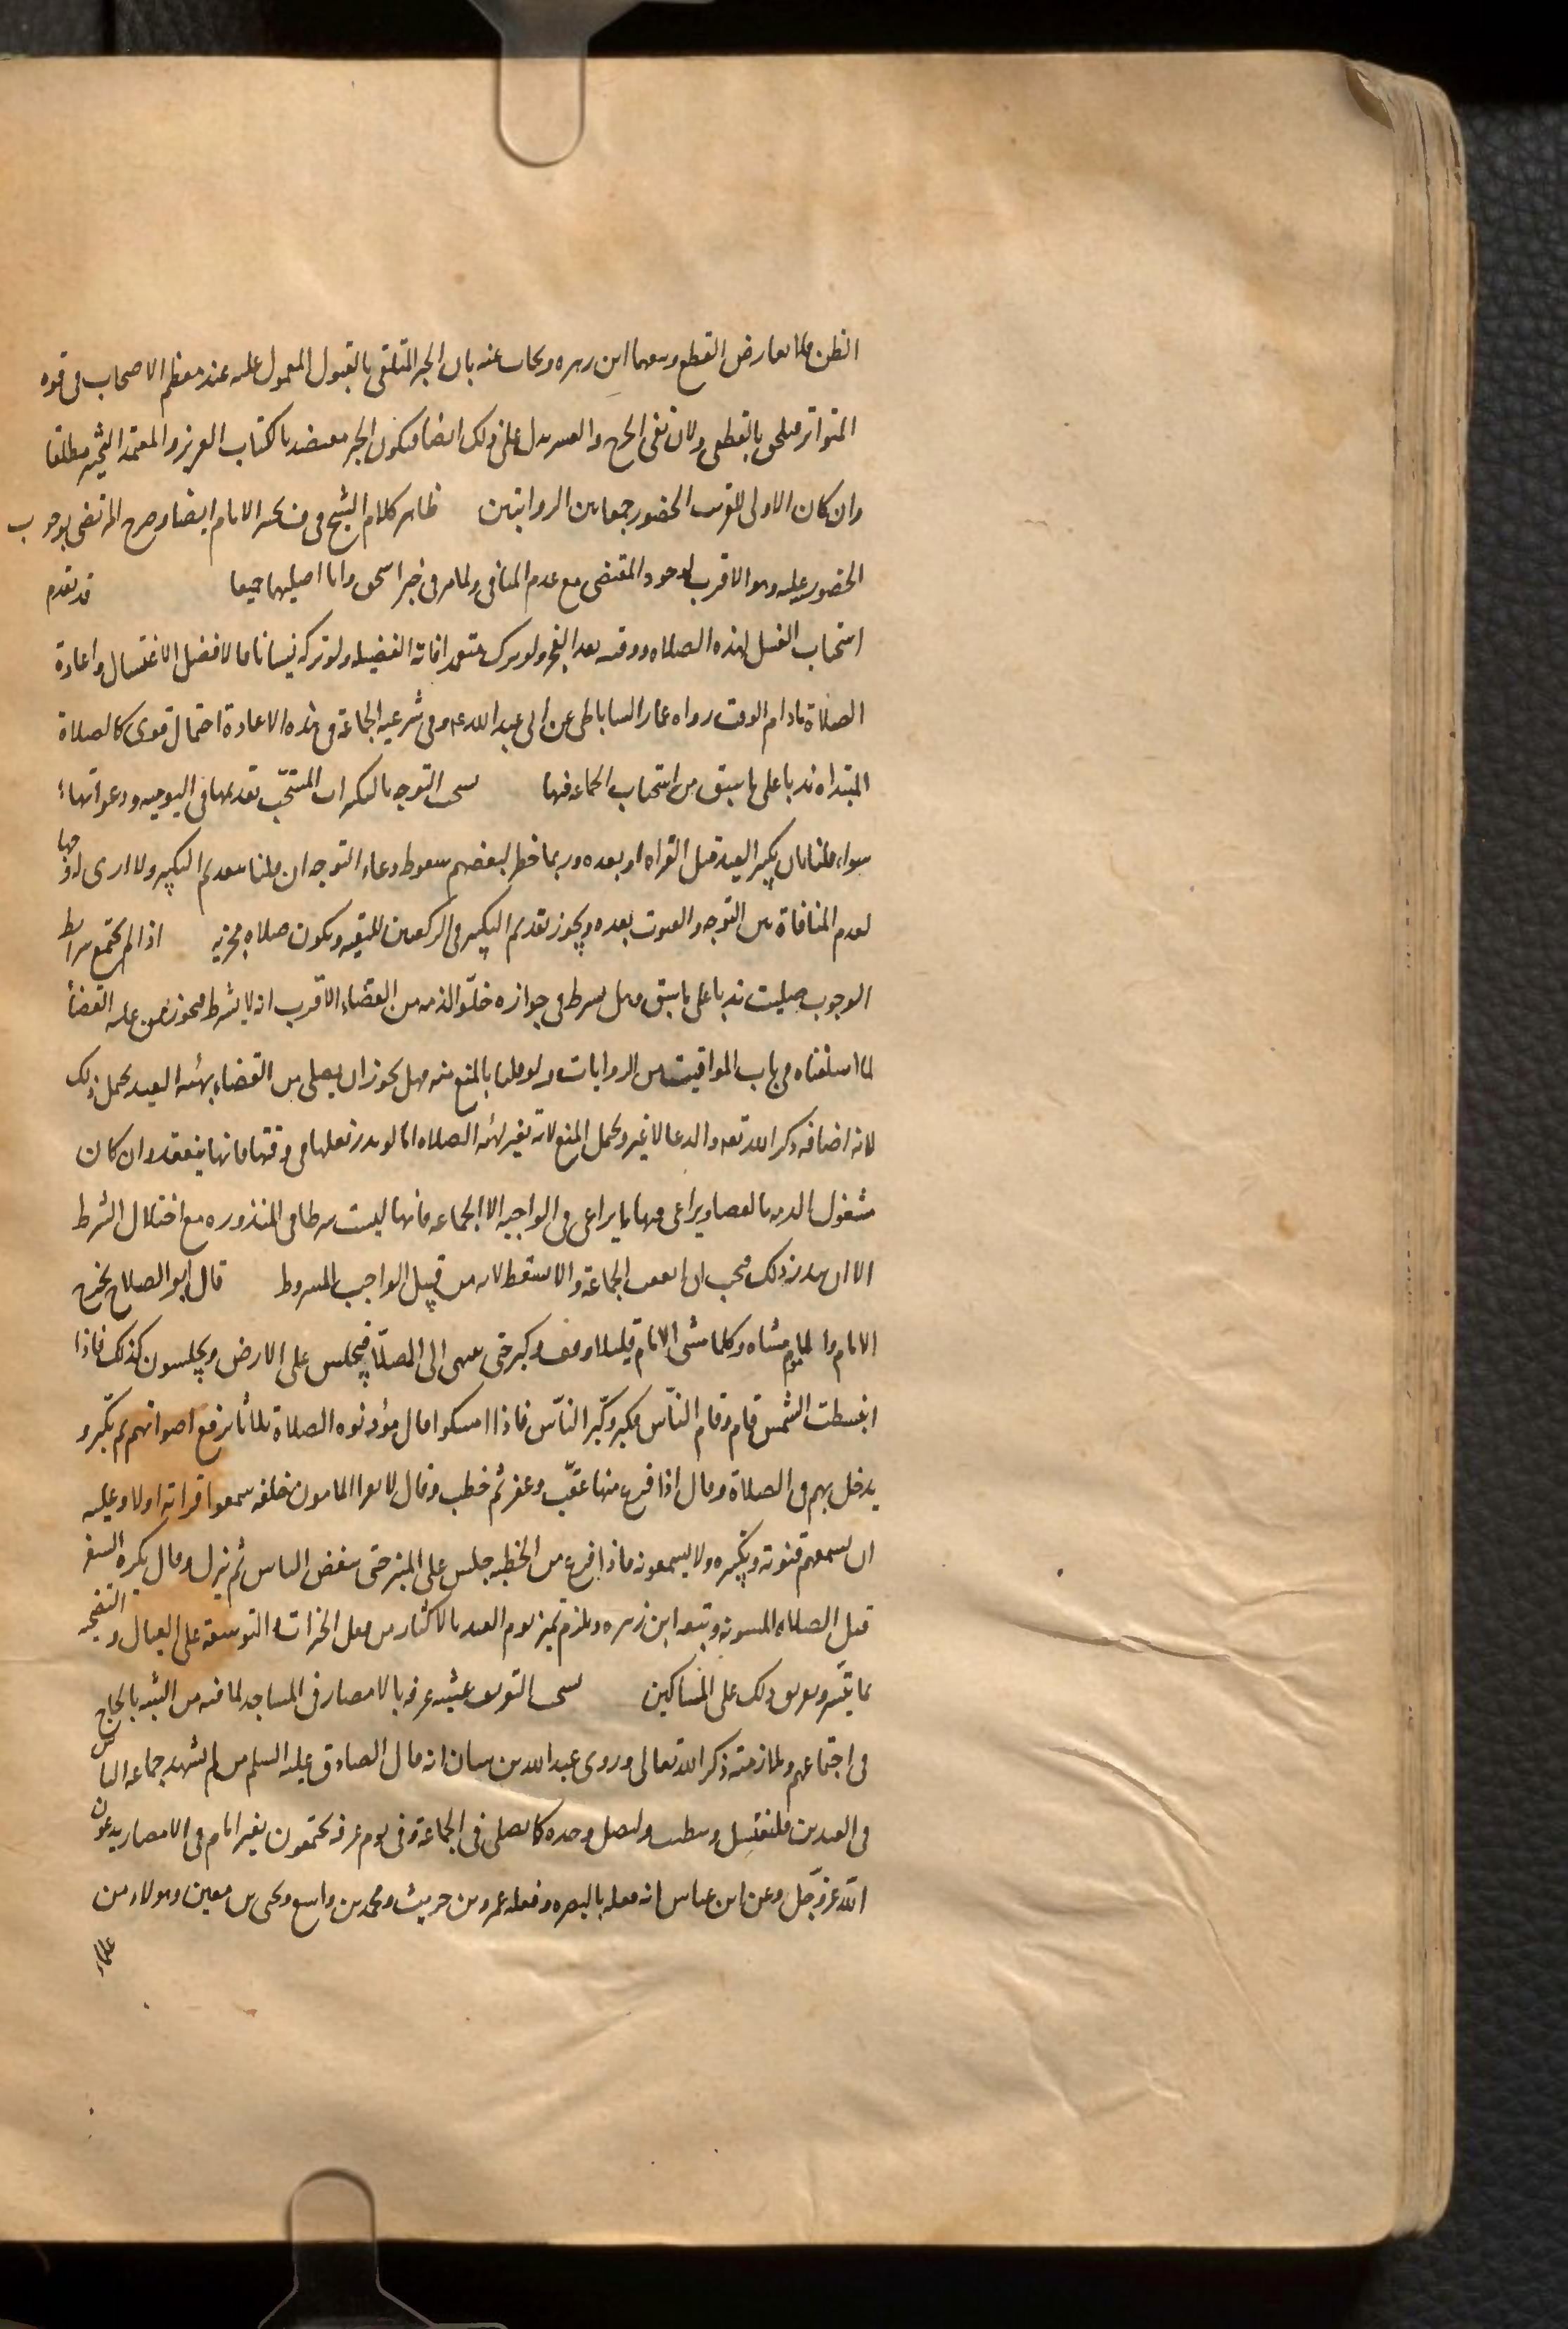 الظن فلا يعارض القطع وتبعهما ابن زهره ويجاب عنه بان الخبر المتلقى بالقبول المعمول عليه عند معظم الاصحاب فى قوه
المتواتر فيلحق بالقطعى ولان نفى الحرج والعسر يدل على ذلك ايضا فيكون الخبر معتضدا بالكتاب العزيز والمعتمد التخيير مطلقا
وان كان الاولى للقريب الحضور جمعا بين الروايتين ظاهر كلام الشيخ فى ف تخيير الامام ايضا وصرح المرتضى بوجوب
الحضور عليه وهو الاقرب لوجود المقتضى مع عدم المنافى ولما مر فى خبر اسحق وانا اصليهما جميعا قد تقدم
استحباب الغسل لهذه الصلاه ووقته بعد الفجر ولو ترك متعمدا فاته الفضيله ولو تركه نسيانا فالافضل الاغتسال واعادة
الصلاة مادام الوقت رواه عمار الساباطى عن ابى عبد الله ع وفى شرعيه الجماعة فى هذه الاعادة احتمال قوى كالصلاة
المبتداه ندبا على ما سبق من استحباب الجماعه فيها يستحب التوجه بالتكبيرات المستحب تقديمها فى اليوميه ودعواتها
سواء قلنا بان تكبير العيد قبل القراءه او بعده وربما خطر لبعضهم سقوط دعاء التوجه ان قلنا بتقديم التكبير ولا ارى له وجها
لعدم المنافاة بين التوجه والقنوت بعده ويجوز تقديم التكبير فى الركعتين للتقيه وتكون صلاه مجزيه اذا لم يجتمع شرائط
الوجوب صليت ندبا على ما سبق وهل يشترط فى جوازه خلو الذمه من القضاء الاقرب انه لا يشترط فيجوز ممن عليه القضاء
لما اسلفناه فى باب المواقيت من الروايات ولو قلنا بالمنع منه فهل يجوز ان يصلى من القضاء بهيئه العيد يحتمل ذلك
لانه اضافه ذكر الله تعه والدعا لا غير ويحتمل المنع لانه تغيير لهيئه الصلاه اما لو نذر فعلها فى وقتها فانها ينعقد وان كان
مشغول الذمه بالقضا ويراعى فيها ما يراعى فى الواجبه الا الجماعه فانها ليست شرطا فى المنذوره مع اختلال الشرط
الا ان ينذر ذلك فيجب ان اتفقت الجماعة والا سقط لانه من قبيل الواجب المشروط قال ابو الصلاح يخرج
الامام والماموم مشاه وكلما مشى الامام قليلا وقف وكبر حتى ينتهى الى المصلا فيجلس على الارض ويجلسون كذلك فاذا
انبسطت الشمس قام وقام الناس فكبر وكبر الناس فاذا امسكوا قال مؤذنوه الصلاة ثلاثا برفع اصواتهم ثم يكبر و
يدخل بهم فى الصلاة وقال اذا فرغ منها عقب وعفر ثم خطب وقال لا يقرا المامون خلفه سمعوا قراته اولا وعليه
ان يسمعهم قنوته وتكبيره ولا يسمعونه فاذا فرغ من الخطبه جلس على المنبر حتى ينفض الناس ثم ينزل وقال يكره السفر
قبل الصلاه المسنونه وتبعه ابن زهره ويلزم تميز يوم العيد بالاكثار من فعل الخيرات والتوسعه على العيال والتضحيه
بما يتيسر وتفريق ذلك على المساكين يستحب التعريف عشيه عرفه بالامصار فى المساجد لما فيه من الشبه بالحاج
فى اجتماعهم وملازمته ذكر الله تعالى وروى عبد الله بن سنان انه قال الصادق عليه السلم من لم يشهد جماعه الناس
فى العيدين فليغتسل وليتطيب وليصل وحده كما يصلى فى الجماعة وفى يوم عرفه يجتمعون بغير امام فى الامصار يدعون
الله عز وجل وعن ابن عباس انه فعله بالبصره وفعله عمرو بن حريث ومحمد بن واسع ويحيى بن معين وهولاء من
علماء